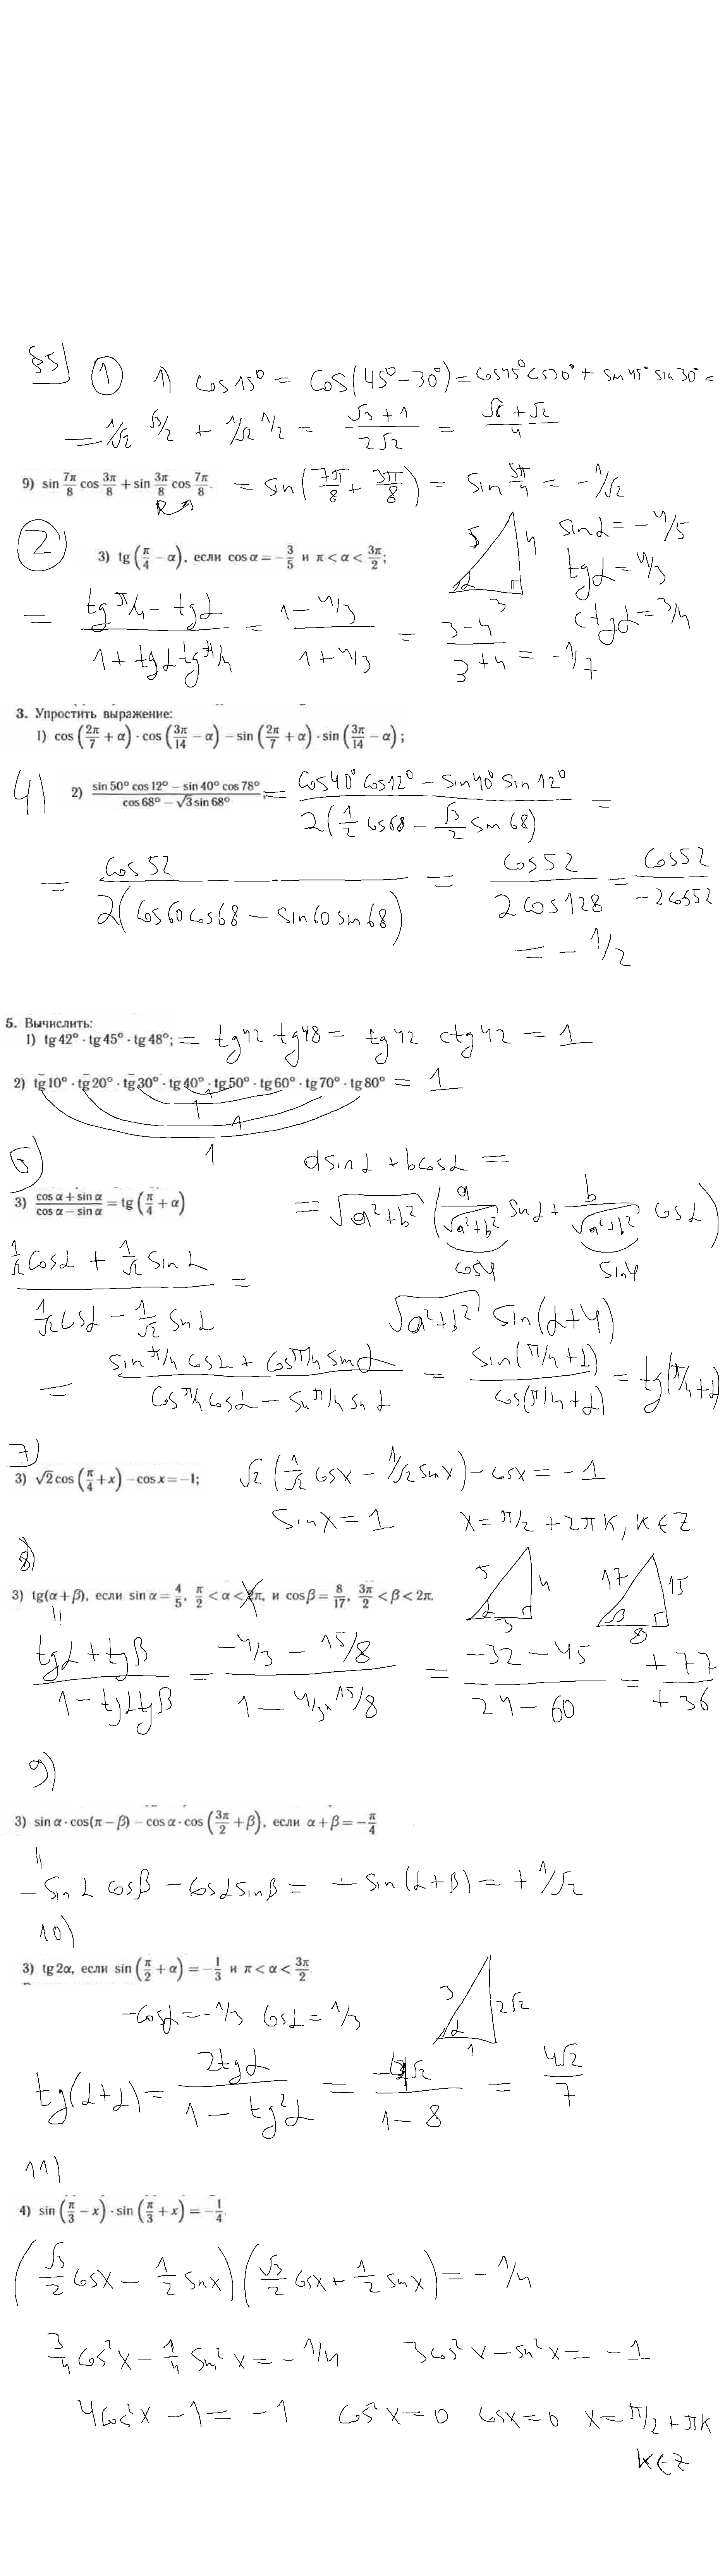 §5) ① 1) cos 15° = cos(45° − 30°) = cos45° cos30° + sin45° sin30° =
= 1/√2 √3/2 + 1/√2 1/2 = (√3 + 1)/(2√2) = (√6 + √2)/4
9) sin 7π/8 cos 3π/8 + sin 3π/8 cos 7π/8. = sin(7π/8 + 3π/8) = sin 5π/4 = −1/√2
② 3) tg (π/4 − α), если cos α = −3/5 и π < α < 3π/2; 5 4 α 3 sin α = −4/5
tg α = 4/3
ctg α = 3/4
= (tg π/4 − tg α)/(1 + tg α tg π/4) = (1 − 4/3)/(1 + 4/3) = (3 − 4)/(3 + 4) = −1/7
3. Упростить выражение:
1) cos (2π/7 + α) · cos (3π/14 − α) − sin (2π/7 + α) · sin (3π/14 − α);
4) 2) (sin 50° cos 12° − sin 40° cos 78°)/(cos 68° − √3 sin 68°); = (cos 40° cos 12° − sin 40° sin 12°)/(2(1/2 cos 68 − √3/2 sin 68)) =
= cos 52/(2(cos 60 cos 68 − sin 60 sin 68)) = cos 52/(2 cos 128) = cos 52/(−2 cos 52)
= −1/2
5. Вычислить:
1) tg 42° · tg 45° · tg 48°; = tg 42 tg 48 = tg 42 ctg 42 = 1
2) tg 10° · tg 20° · tg 30° · tg 40° · tg 50° · tg 60° · tg 70° · tg 80° = 1
1
1
1
6) a sin α + b cos α =
3) (cos α + sin α)/(cos α − sin α) = tg (π/4 + α)
= √(a²+b²) (a/√(a²+b²) sin α + b/√(a²+b²) cos α)
cos φ sin φ
(1/√2 cos α + 1/√2 sin α)/(1/√2 cos α − 1/√2 sin α) =
√(a²+b²) sin(α + φ)
= (sin π/4 cos α + cos π/4 sin α)/(cos π/4 cos α − sin π/4 sin α) = sin(π/4 + α)/cos(π/4 + α) = tg(π/4 + α)
7)
3) √2 cos (π/4 + x) − cos x = −1; √2 (1/√2 cos x − 1/√2 sin x) − cos x = −1
sin x = 1 x = π/2 + 2πk, k ∈ Z
8)
3) tg(α + β), если sin α = 4/5, π/2 < α < π, и cos β = 8/17, 3π/2 < β < 2π. 5 4 α 3 17 15 β 8
(tg α + tg β)/(1 − tg α tg β) = (−4/3 − 15/8)/(1 − 4/3 · 15/8) = (−32 − 45)/(24 − 60) = +77/+36
9)
3) sin α · cos(π − β) − cos α · cos (3π/2 + β), если α + β = −π/4
− sin α cos β − cos α sin β = − sin(α + β) = + 1/√2
10)
3) tg 2α, если sin (π/2 + α) = −1/3 и π < α < 3π/2.
−cos α = −1/3 cos α = 1/3 3 2√2 α 1
tg(α + α) = 2 tg α/(1 − tg² α) = −4√2/(1 − 8) = 4√2/7
11)
4) sin (π/3 − x) · sin (π/3 + x) = −1/4.
(√3/2 cos x − 1/2 sin x)(√3/2 cos x + 1/2 sin x) = −1/4
3/4 cos² x − 1/4 sin² x = −1/4 3cos² x − sin² x = −1
4cos² x − 1 = −1 cos² x = 0 cos x = 0 x = π/2 + πk
k ∈ Z